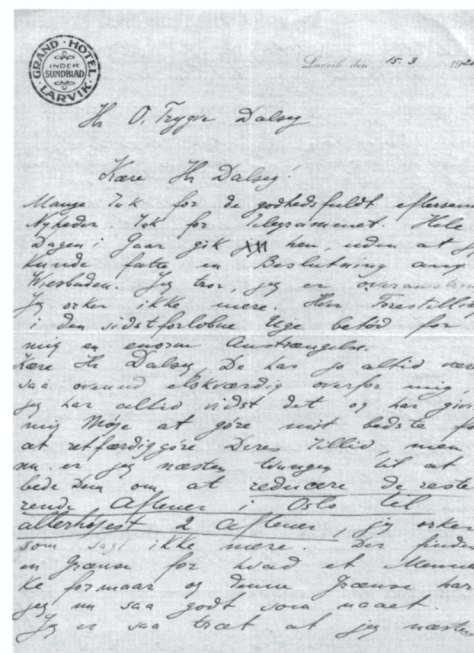 GRAND HOTEL
INDEH
SUNDBLAD
LARVIK
Larvik den 15. 3 192
Hr O. Trygve Dalseg
Kære Hr Dalseg!
Mange Tak for de godhedsfuldt eftersen
Nyheder. Tak for Telegrammet. Hele
Dagen i Gaar gik hen, uden at j
kunde fatte en Beslutning ang
Wiesbaden. Jeg tror, jeg er overanstr
Jeg orker ikke mere. Hver Forestillin
i den sidstforløbne Uge betød for
mig en enorm Anstrængelse.
Kære Hr Dalseg, De har jo altid vær
saa overaud elskværdig overfor mig
jeg har altid vidst det og har gior
mig Møje at göre mit bedste fo
at retfærdiggöre Deres Tillid, men
nu er jeg næsten tvungen til at
bede Dem om, at reducere de reste
rende Aftener i Oslo til
allerhøjest 2 Aftener, jeg orker
som sagt ikke mere. Der finde
en Grænse for hvad et Menne
ke formaar og denne Grænse har
jeg nu saa godt som naaet.
Jeg er saa træt at jeg næste